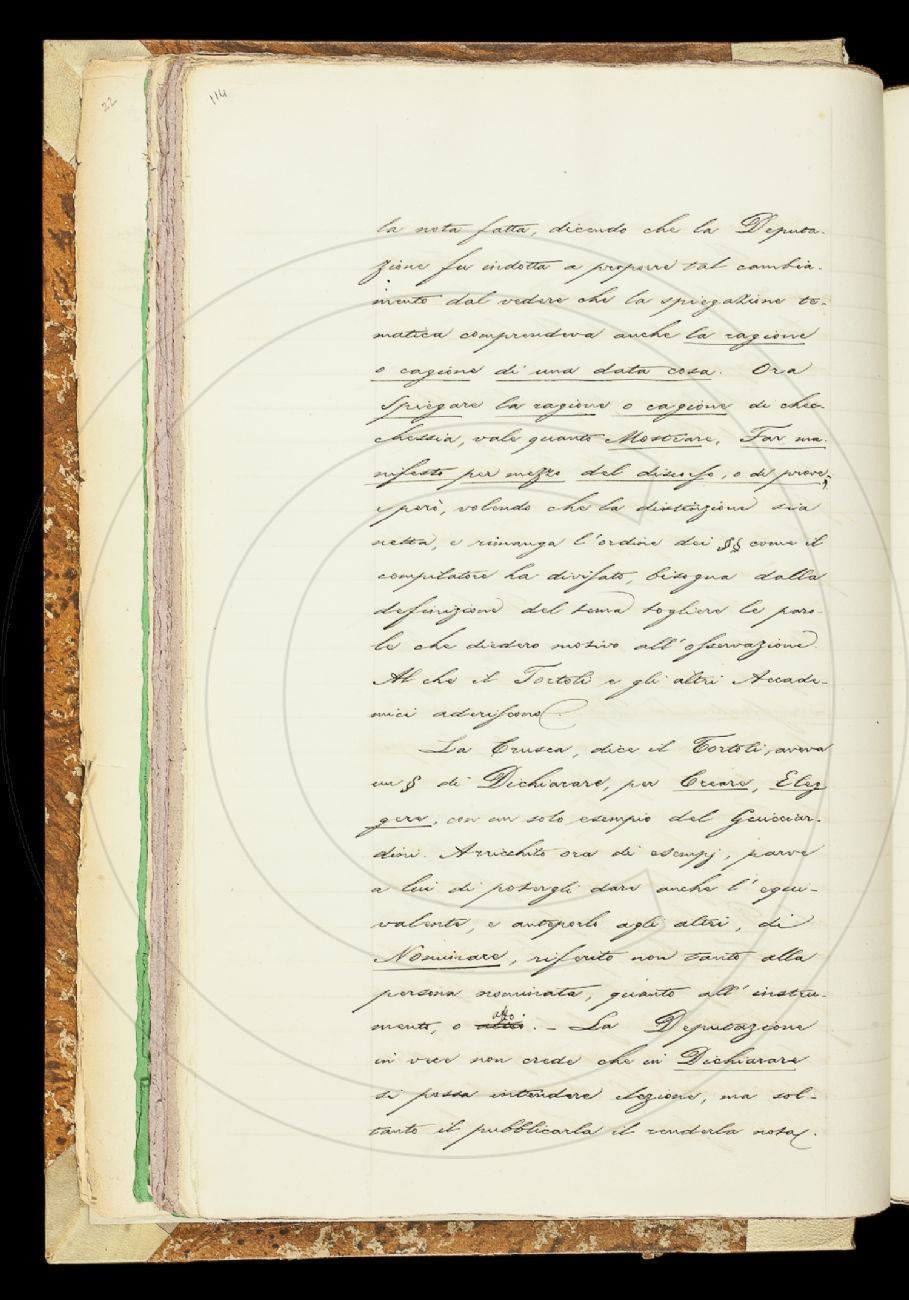 22
114
la nota fatta, dicendo che la Deputa-
zione fu indotta a proporre tal cambia-
mento dal vedere che la spiegazione te-
matica comprendeva anche la ragione
o cagione di una data cosa. Ora
Spiegare la ragione o cagione di chec-
chessia, vale quanto Mostrare, Far ma-
nifesto per mezzo del discorso, o di prove;
e però, volendo che la distinzione sia
netta, e rimanga l'ordine dei §§ come il
compilatore ha divisato, bisogna dalla
definizione del tema togliere le paro-
le che diedero motivo all'osservazione.
Al che il Tortoli e gli altri Accade-
mici aderiscono.
La Crusca, dice il Tortoli, aveva
un § di Dichiarare, per Creare, Eleg-
gere, con un solo esempio del Guicciar-
dini. Arricchito ora di esempj, parve
a lui di potergli dare anche l'equi-
valente, e anteporlo agli altri, di
Nominare, riferito non tanto alla
persona nominata, quanto all'instru-
mento, o atto. - La Deputazione
in vece non crede che in Dichiarare
si possa intendere elezione, ma sol-
tanto il pubblicarla il renderla nota.